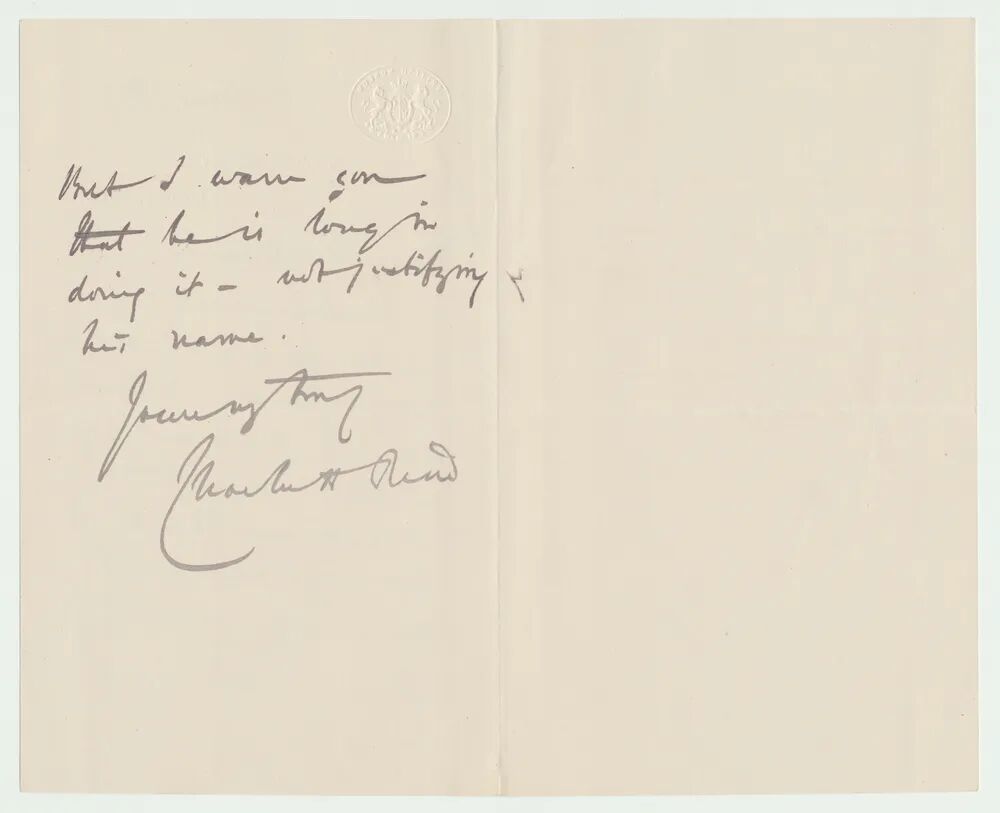 But I warn you
that he is long in
doing it – not justifying
his name.
Yours very truly
Charles H Read